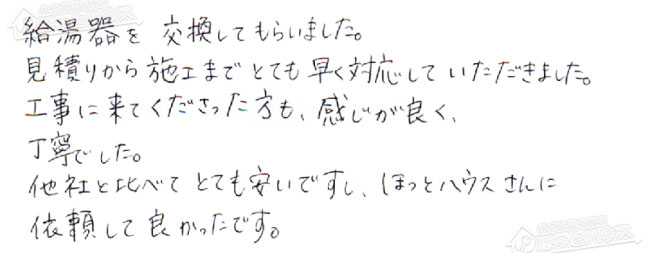 給湯器を 交換してもらいました。
見積りから施工までとても早く対応していただきました。
工事に来てくださった方も、感じが良く、
丁寧でした。
他社と比べてとても安いですし、ほっとハウスさんに
依頼して良かったです。